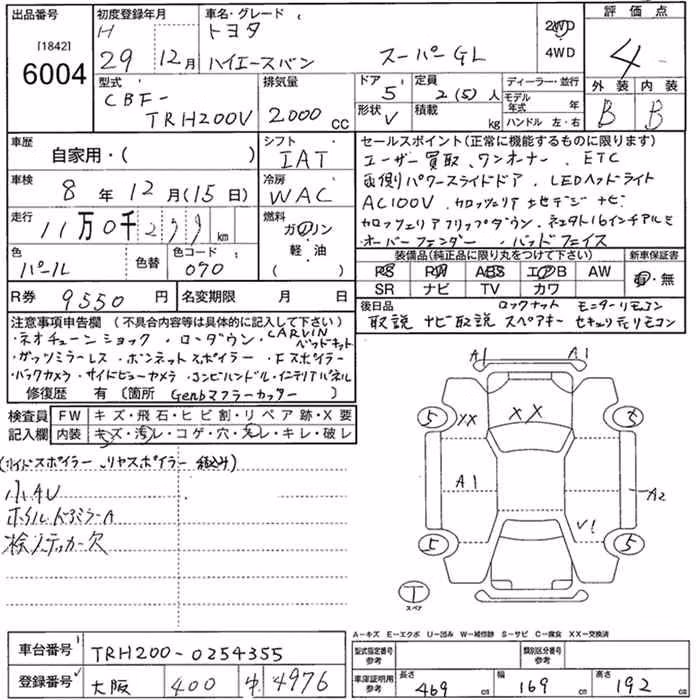 出品番号
[1842]
6004
初度登録年月
H
29 12月
車名・グレード
トヨタ
ハイエースバン スーパーGL
2WD
4WD
評価点
4
外装 内装
B B
型式
CBF-
TRH200V
排気量
2000 cc
ドア
5
定員
2(5)人
形状
V
積載
kg
ディーラー・並行
モデル年式 年
ハンドル 左・右
車歴
自家用・( )
シフト
IAT
車検
8年12月(15日)
冷房
WAC
走行
11万0千299km
燃料
ガソリン
軽・油
( )
色
パール
色替
色コード
070
R券 9550円
名変期限 月 日
セールスポイント(正常に機能するものに限ります)
ユーザー買取、ワンオーナー、ETC
両側パワースライドドア、LEDヘッドライト
AC100V、カロッツェリア地デジナビ
カロッツェリアフリップダウン、ネオクルト16インチアルミ
オーバーフェンダー、バッドフェイス
装備品(純正品に限り丸をつけて下さい)
新車保証書
PS PW ABS エアB AW
SR ナビ TV カワ
有・無
後日品 ロックナット モニターリモコン
取説 ナビ取説 スペアキー セキュリティリモコン
注意事項申告欄(不具合内容等は具体的に記入して下さい)
・ネオチューンショック・ローダウン・CARVINベッドキット
・ガッツミラーレス・ボンネットスポイラー・Fスポイラー
・バックカメラ・サイドビューカメラ・コンビハンドル・インテリアパネル
修復歴 有(箇所 Genbマフラーカッター)
検査員
記入欄
FW キズ・飛石・ヒビ割・リペア跡・X要
内装 キズ・汚レ・コゲ・穴・スレ・キレ・破レ
(サイドスポイラー、リヤスポイラー 組込み)
小キU
ホイル、ドアミラーA
検ステッカー欠
A1 A1
5 XX XX 5
A1 A2
V1
5 5
T
スペア
A-キズ E-エクボ U-凹み W-補修跡 S-サビ C-腐食 XX-交換済
車台番号 TRH200-0254355
登録番号 大阪 400 せ 4976
型式指定番号
参考
類別区分番号
参考
車庫証明用
参考
長さ 469cm 幅 169cm 高さ 192cm